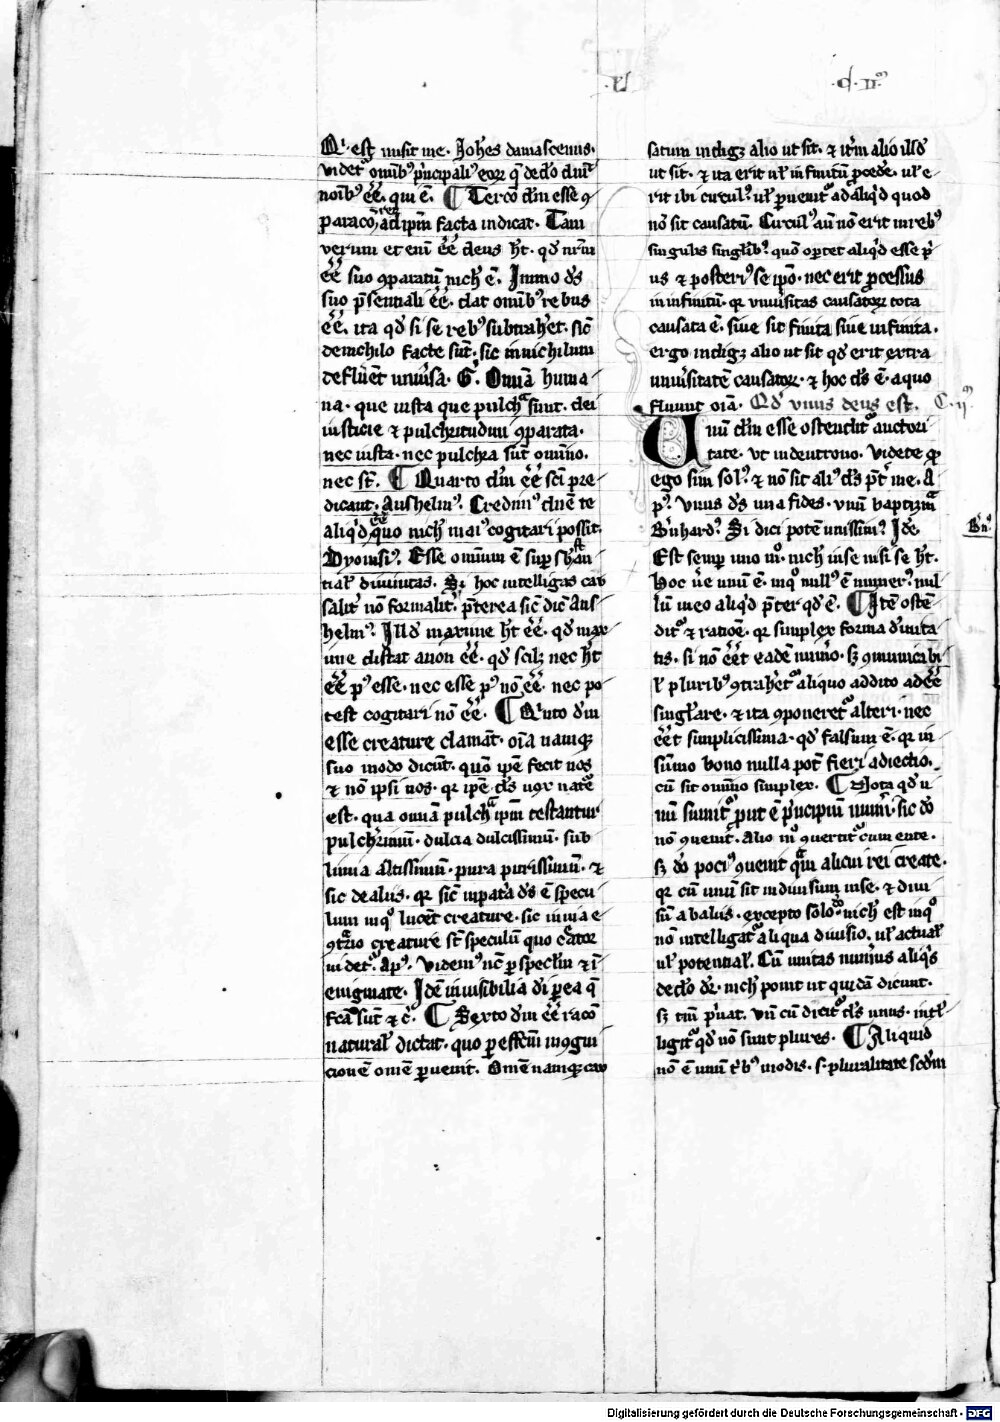 .L. .d.II͠.
Qͥ. est misit me. Joh̅es damascenus.
videt᷑ om̅ibꝰ p̅ncipaliꝰ eoꝝ q̅ de deo dnr̅
noı̅bꝰ ee̅. qui e̅. ¶ Tercō dm̅ esse ꝯ
paracō rerū ad ip̅m facta indicat. Tam
verum et eni̅ ee̅ deus ht̅. qd̕ nr̅m
ee̅ suo ꝯparatū nich̕ e̅. Immo ds̅
suo p̅sentiali ee̅. dat om̅ibꝰ rebus
ee̅. ita qd̕ si se rebꝰ subtrah̕et. sic̅
de nichilo facte su̅t. sic in nichilum
defluere̅t univ̕sa. G. Omia̅ huma
na. que iusta que pulch̕ sunt. dei
iusticie ⁊ pulchritudini ꝯparata.
nec iusta. nec pulchra su̅t omi̅no.
nec st̅. ¶ Quarto dm̅ ee̅ sc̅i pre
dicant. Anshelmꝰ. Credimꝰ dn̅e te
aliqd̕ ee̅ quo nich̕ maiꝰ cogitari possit.
Dyonisiꝰ. Esse omnium e̅ sup̲ sb̅stan
tial̕ divinitas. Si hoc intelligas cau
salit̕ no̅ formalit̕. p̅terea sic̅ dic̅ Ans
helmꝰ. Illd̕ maxime ht̅ ee̅. qd̕ max
ime distat a non ee̅. qd̕ scilꝫ nec ht̅
ee̅ pꝰ esse. nec esse pꝰ no̅ ee̅. nec po
test cogitari no̅ ee̅. ¶ Qͥnto dm̅
esse creature clama̅t. oı̅a namqꝫ
suo modo dicu̅t. quō ip̅e fecit nos
⁊ no̅ ip̅si nos. qr ip̅e ds̅ uox nat̅e
est. qua omia̅ pulchͣ ip̅m testantur
pulch̕rimū. dulcia dulcissimū. sub
limia altissimū. pura purissimū. ⁊
sic de aliis. qr sic̅ in patr̕a ds̅ e̅ specu
lum in qͦ luce̅t creature. sic in uia e
ꝯtͣrio creature st̅ speculū quo creator
videt᷑. Apꝰ. Videmꝰ nc̅ p̲ specl̕m ⁊ i̅
enigmate. Ide̅ invisibilia d̕i p̲ ea q̅
fc̅a su̅t ⁊ c̕. ¶ Sexto dm̅ ee̅ racō
natural̕ dictat. quo p̲ effc̅m in ꝯgni
cione̅ om̅e p̲uenit. Ome̅ namqꝫ cau
satum indigꝫ alio ut sit. ⁊ itr̕m alio illd̕
ut sit. ⁊ ita erit ul̕ in infinitū p̲cede̕. ul̕ e
rit ibi circulꝰ. ul̕ p̲uenit᷑ ad aliqd̕ quod
no̅ sit causatū. Circulꝰ au̅ no̅ erit in rebꝰ
singulis singl̕ibꝰ. quō oportet aliqd̕ esse pͥ
us ⁊ posteriꝰ se ip̅o. nec erit p̲cessus
in infinitū. qr univ̕sitas causatoꝝ tota
causata e̅. sive sit finita sive infinita.
ergo indigꝫ alio ut sit qd̕ erit extra
univ̕sitate̅ causatoꝝ. ⁊ hoc ds̅ e̅. a quo
fluunt oı̅a. Qd̕ unus deus est. C. ij͠.
Unū dm̅ esse ostendit᷑ auctori
tate. ut in deutrono. Videte qͦ
ego sim solꝰ. ⁊ no̅ sit aliꝰ ds̅ p̅t̕ me. A
pꝰ. Unus ds̅ una fides. unū baptizmͣ
B̕nhardꝰ. Si dici pote̅ unissimꝰ. Ide̅. B̕nꝰ
Est semp̲ uno mͦ. nich̕ in se nisi se ht̅.
Hoc v̕e unū e̅. in qͦ nullꝰ e̅ numerꝰ. nul
lū in eo aliqd̕ p̅ter qd̕ e̅. ¶ Ite̅ oste̅
dit᷑ ⁊ ratione̅. qr simplex forma d̕inita
tis. si no̅ ee̅t eade̅ nu̅o. sꝫ ꝯmunicabi
l̕ pluribꝰ ꝯtrah̕et᷑ aliquo addito ad ee̅
singl̕are. ⁊ ita ꝯponeret᷑ alteri. nec
ee̅t simplicissima. qd̕ falsum e̅. qr in
su̅mo bono nulla pot̅ fieri adiectio.
cū sit omi̅no simplex. ¶ Nota qd̕ u
nū sumit᷑ p̲ut e̅ p̅ncipiū num̕i. sic d̕o
no̅ ꝯuenit. Alio mͦ ꝯuertit᷑ cum ente.
sꝫ d̕o pociꝰ ꝯuenit qͣm alicui rei create.
qr cū unū sit indivisum in se. ⁊ divi
sū ab aliis. excepto solo deo nich̕ est in qͦ
no̅ intelligat᷑ aliqua divisio. ul̕ actual̕
ul̕ potential̕. Cū unitas numꝰ aliqͥs
de deo dr̅. nich̕ ponit ut quida̅ dicunt.
sꝫ tm̅ pͥuat. Un̅ cū dicit᷑ ds̅ unus. intel̕
ligit᷑ qd̕ no̅ sunt plures. ¶ Aliquid
no̅ e̅ unū tͥbꝰ modis. s. pluralitate scd̕m